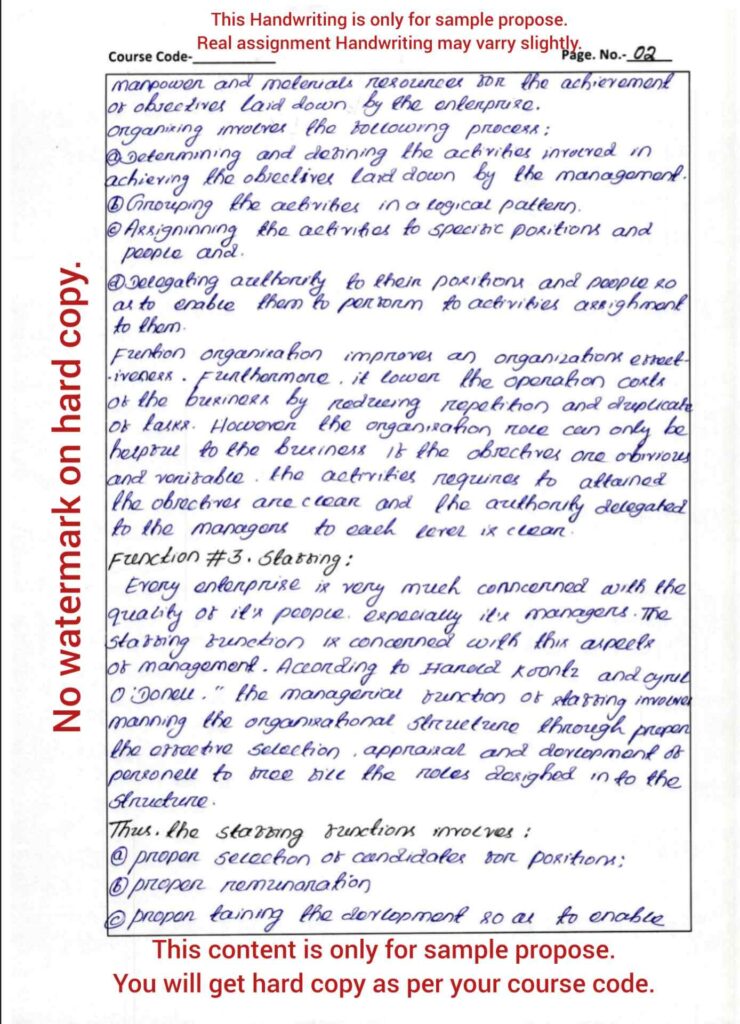 This Handwriting is only for sample propose.
Real assignment Handwriting may varry slightly.
Course Code-__________ Page. No.- 02
manpower and materials resources for the achievement
of objectives laid down by the enterprise.
organising involves the following process;
ⓐ Determining and defining the activities involved in
achieving the objectives laid down by the management.
ⓑ Grouping the activities in a logical pattern.
ⓒ Assigninning the activities to specific positions and
people and.
ⓓ Delegating authority to their positions and people so
as to enable them to perform to activities assighment
to them.
Funtion organisation improves an organizations effect-
-iveness. Furthermore, it lower the operation costs
of the business by reducing repetition and duplicate
of tasks. However the organisation role can only be
helpful to the business if the objectives are obvious
and verifable. the activities requires to attained
the objectives are clear and the authority delegated
to the managers to each level is clear.
Function #3. Staffing:
Every enterprise is very much conncerned with the
quality of it's people. especially it's managers. The
staffing function is concerned with this aspects
of management. According to Harold Koontz and cyril
O'Donell. " the managerial function of staffing involves
manning the organisational structure through proper
the effective selection, appraisal and devlopment of
personell to free fill the roles desighed in to the
structure.
Thus. the staffing functions involves:
ⓐ proper selection of candidates for positions;
ⓑ proper remunaration
ⓒ proper taining the devlopment so as to enable
This content is only for sample propose.
You will get hard copy as per your course code.
No watermark on hard copy.